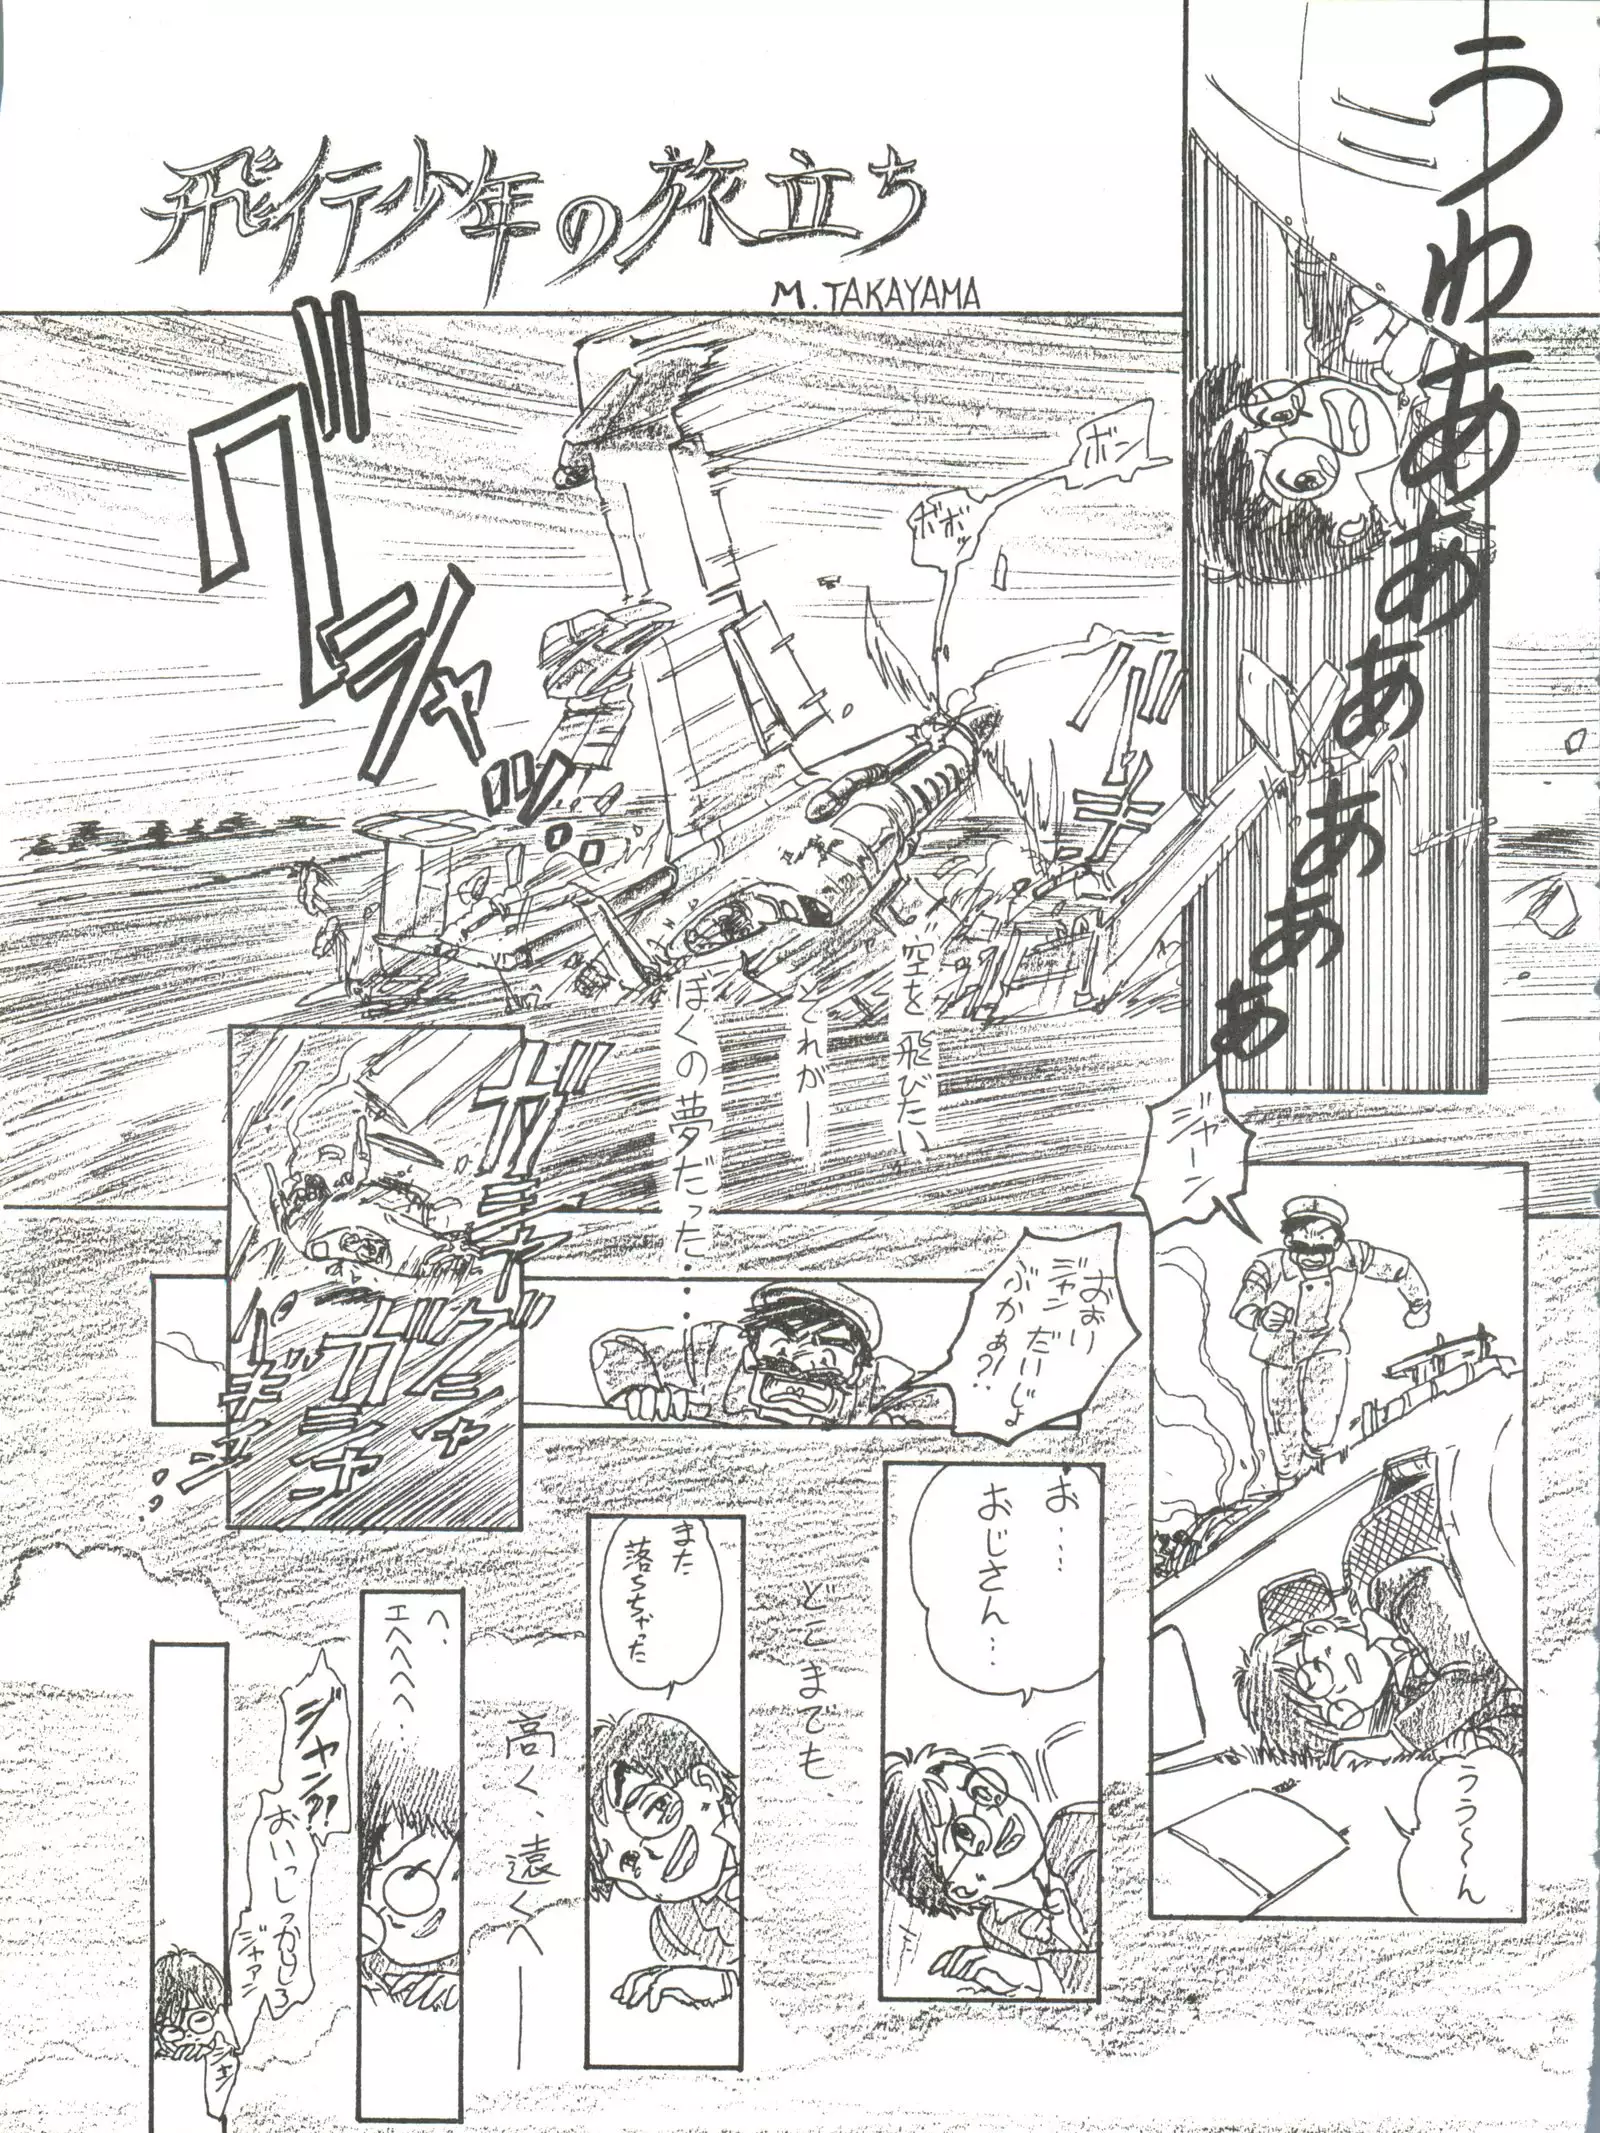 飛行少年の旅立ち
M. TAKAYAMA
うわああああああああぁ
グ
シャッ
ボボボッ
ボン
バキ
空を飛びたい
それがー
ぼくの夢だった……
ガキャ
ガシャ
ジャーン
おおい
ジャンだいじょ
ぶかぁ?!
うう〜〜ん
お……
おじさん…
どこまでも、
また
落ちちゃった
高く、遠くへ――
へ、
エへへへへ、
ジャン?!
おいっしっかりしろ
ジャアン
ジャン